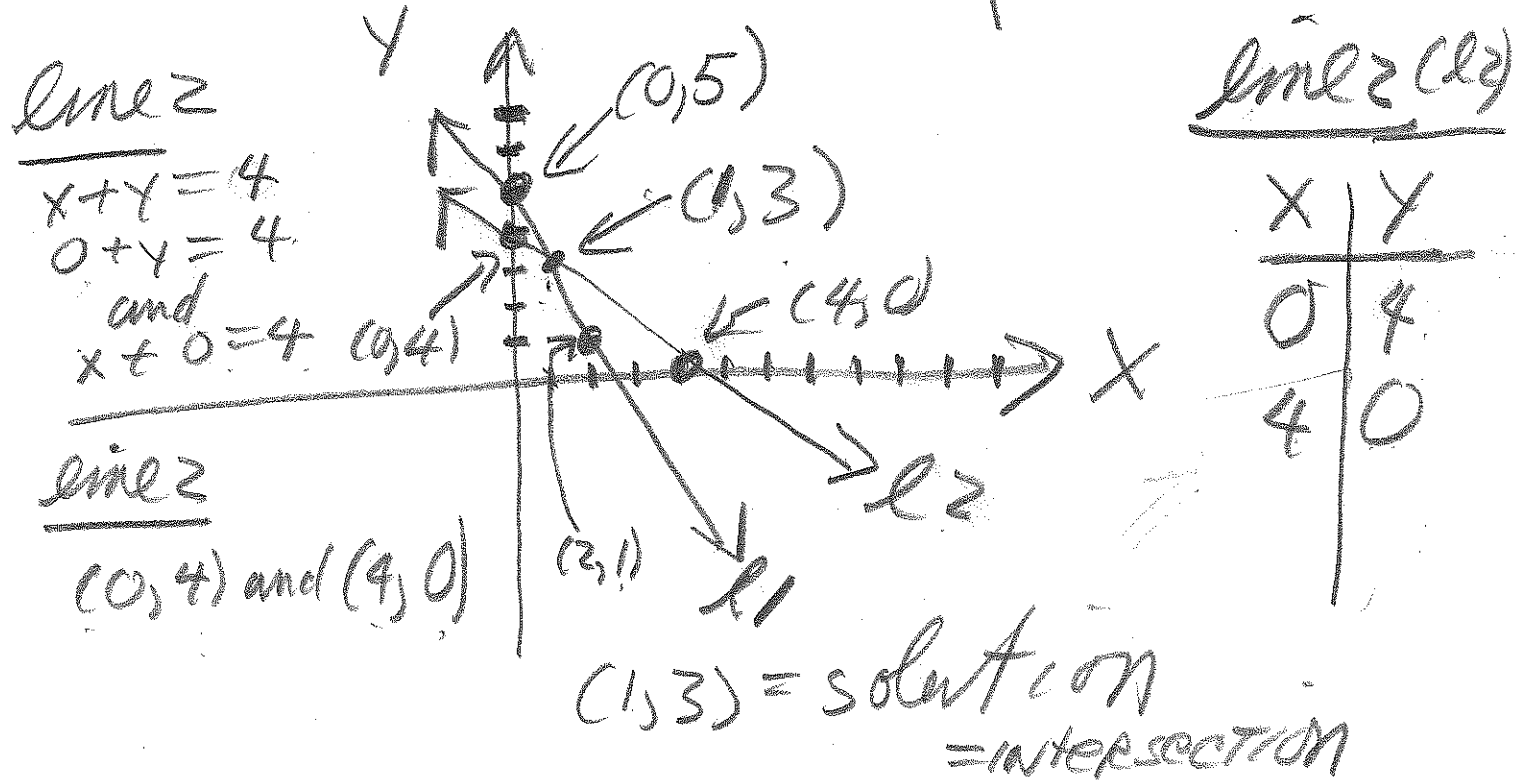 line 2
x+y=4
0+y=4
and
x+0=4
line 2
(0,4) and (4,0)
Y
(0,5)
(1,3)
(4,0)
(0,4)
(2,1)
X
l2
l1
(1,3) = solution
=intersection
line 2 (l2)
X Y
0 4
4 0